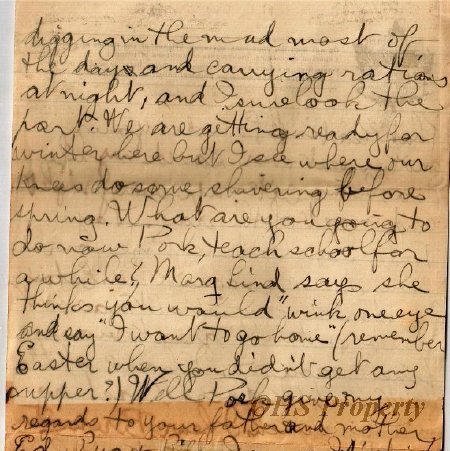 digging in the mud most of
the days and carrying rations
at night, and I sure look the
part. We are getting ready for
winter here but I see where our
knees do some shivering before
spring. What are you going to
do now Pork, teach school for
a while? Marg Lind says she
thinks you would "wink one eye
and say "I want to go home" (remember
Easter when you didn't get any
supper?) Well Pork give my
regards to your father and mother,
©HS Property